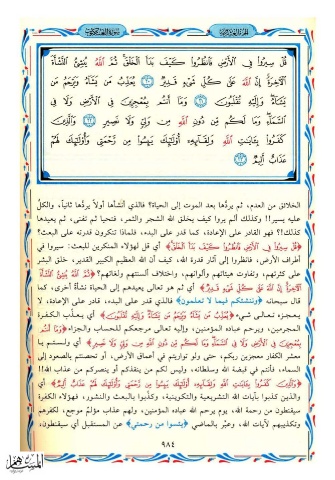 الجزء العشرون
سورة العنكبوت
قُلْ سِيرُوا۟ فِى ٱلْأَرْضِ فَٱنظُرُوا۟ كَيْفَ بَدَأَ ٱلْخَلْقَ ثُمَّ ٱللَّهُ يُنشِئُ ٱلنَّشْأَةَ
ٱلْءَاخِرَةَ إِنَّ ٱللَّهَ عَلَىٰ كُلِّ شَىْءٍ قَدِيرٌ ۝٢٠ يُعَذِّبُ مَن يَشَآءُ وَيَرْحَمُ مَن
يَشَآءُ وَإِلَيْهِ تُقْلَبُونَ ۝٢١ وَمَآ أَنتُم بِمُعْجِزِينَ فِى ٱلْأَرْضِ وَلَا فِى
ٱلسَّمَآءِ وَمَا لَكُم مِّن دُونِ ٱللَّهِ مِن وَلِىٍّ وَلَا نَصِيرٍ ۝٢٢ وَٱلَّذِينَ
كَفَرُوا۟ بِـَٔايَـٰتِ ٱللَّهِ وَلِقَآئِهِۦٓ أُو۟لَـٰٓئِكَ يَئِسُوا۟ مِن رَّحْمَتِى وَأُو۟لَـٰٓئِكَ لَهُمْ
عَذَابٌ أَلِيمٌ ۝٢٣
الخلائق من العدم، ثم يردُّها بعد الموت إلى الحياة؟ فالذي أنشأها أولاً يردُّها ثانياً، والكلُّ
عليه يسير!! وكذلك ألم يروا كيف يخلق الله الشجر والثمر، فتحيا ثم تفنى، ثم يعيدها
كذلك!؟ فهو القادر على الإعادة، كما قدر على البدء، فلماذا تنكرون قدرته على البعث؟
﴿قُلْ سِيرُوا فِي الْأَرْضِ فَانظُرُوا كَيْفَ بَدَأَ الْخَلْقَ﴾ أي قل لهؤلاء المنكرين للبعث: سيروا في
أطراف الأرض، فانظروا إلى آثار قدرة الله، كيف أن الله العظيم الكبير القدير، خلق البشر
على كثرتهم، وتفاوت هيئاتهم وألوانهم، واختلاف ألسنتهم ولغاتهم؟ ﴿ثُمَّ اللَّهُ يُنشِئُ النَّشْأَةَ
الْآخِرَةَ إِنَّ اللَّهَ عَلَى كُلِّ شَيْءٍ قَدِيرٌ﴾ أي ثم هو تعالى يعيدهم إلى الحياة نشأة أخرى، كما
قال سبحانه ﴿وننشئكم فيما لا تعلمون﴾ فالذي قدر على البدء، قادر على الإعادة، لا
يعجزه تعالى شيء ﴿يُعَذِّبُ مَن يَشَاءُ وَيَرْحَمُ مَن يَشَاءُ وَإِلَيْهِ تُقْلَبُونَ﴾ أي يعذب الكفرة
المجرمين، ويرحم عباده المؤمنين، وإليه تعالى مرجعكم للحساب والجزاء ﴿وَمَا أَنتُم
بِمُعْجِزِينَ فِي الْأَرْضِ وَلَا فِي السَّمَاءِ وَمَا لَكُم مِّن دُونِ اللَّهِ مِن وَلِيٍّ وَلَا نَصِيرٍ﴾ أي ولستم يا
معشر الكفار معجزين ربكم، حتى ولو تواريتم في أعماق الأرض، أو تحصنتم بالصعود إلى
السماء، فأنتم في قبضة الله وسلطانه، وليس لكم من ينقذكم أو ينصركم من عذاب الله!!
﴿وَالَّذِينَ كَفَرُوا بِآيَاتِ اللَّهِ وَلِقَائِهِ أُولَئِكَ يَئِسُوا مِن رَّحْمَتِي وَأُولَئِكَ لَهُمْ عَذَابٌ أَلِيمٌ﴾ أي
والذين كذبوا بآيات الله التشريعية والتكوينية، وكذَّبوا بالبعث والنشور، فهؤلاء الكفرة
سيقنطون من رحمة الله، يوم يرحم الله عباده المؤمنين، ولهم عذاب مؤلم موجع، لكفرهم
وتكذيبهم لآيات الله، وعبَّر بالماضي ﴿يئسوا من رحمتي﴾ عن المستقبل أي سيقنطون،
٩٨٤